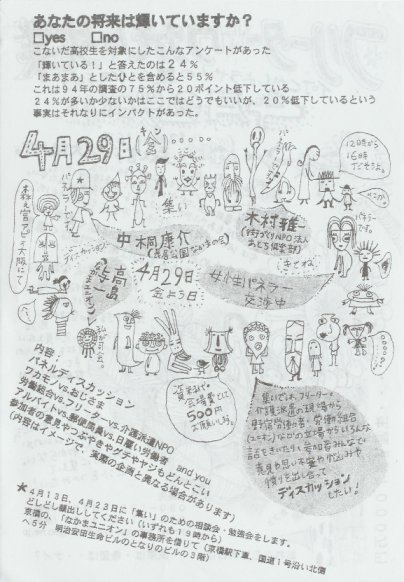 あなたの将来は輝いていますか？
□yes □no
こないだ高校生を対象にしたこんなアンケートがあった
「輝いている！」と答えたのは２４％
「まあまあ」としたひとを含めると５５％
これは９４年の調査の７５％から２０ポイント低下している
２４％が多いか少ないかはここではどうでもいいが、２０％低下しているという
事実はそれなりにインパクトがあった。
4月29日(金)‥‥
キン
12時から
16時
でござるよ。
集い
パネラーディスカッション
森之宮アピオ大阪にて
中桐康介
(長居公園
木村雅一
(街づくりNPO法人
あとち倶楽部)
パネラー
高島
与一
(ユニオン)
4月29日
金よう日
女性パネラー
交渉中
資料代や
会場費として
500円
お願いします。
内容：
パネルディスカッション
ワカモノvs.おじさま
労働組合vs.フリーター
アルバイトvs.郵便局員vs.介護派遣NPO
参加者の意見やつぶやきやグチやヤジもどんとこい and you
(内容はイメージで、実際の企画と異なる場合があります)
集いでは、フリーターや
介護派遣の現場から
野宿労働者、労働組合
(ユニオン)などの立場からいろんな
話をきいたり、参加者みんなで
意見や思いや
ディスカッション
したい！
＊４月１３日、４月２３日に「集い」のための相談会・勉強会をします。
どしどし顔出ししてください（いずれも１９時から）
京橋の、「なかまユニオン」の事務所を借りて（京橋駅下車、国道１号沿い北側
へ５分 明治安田生命ビルのとなりのビルの３階）